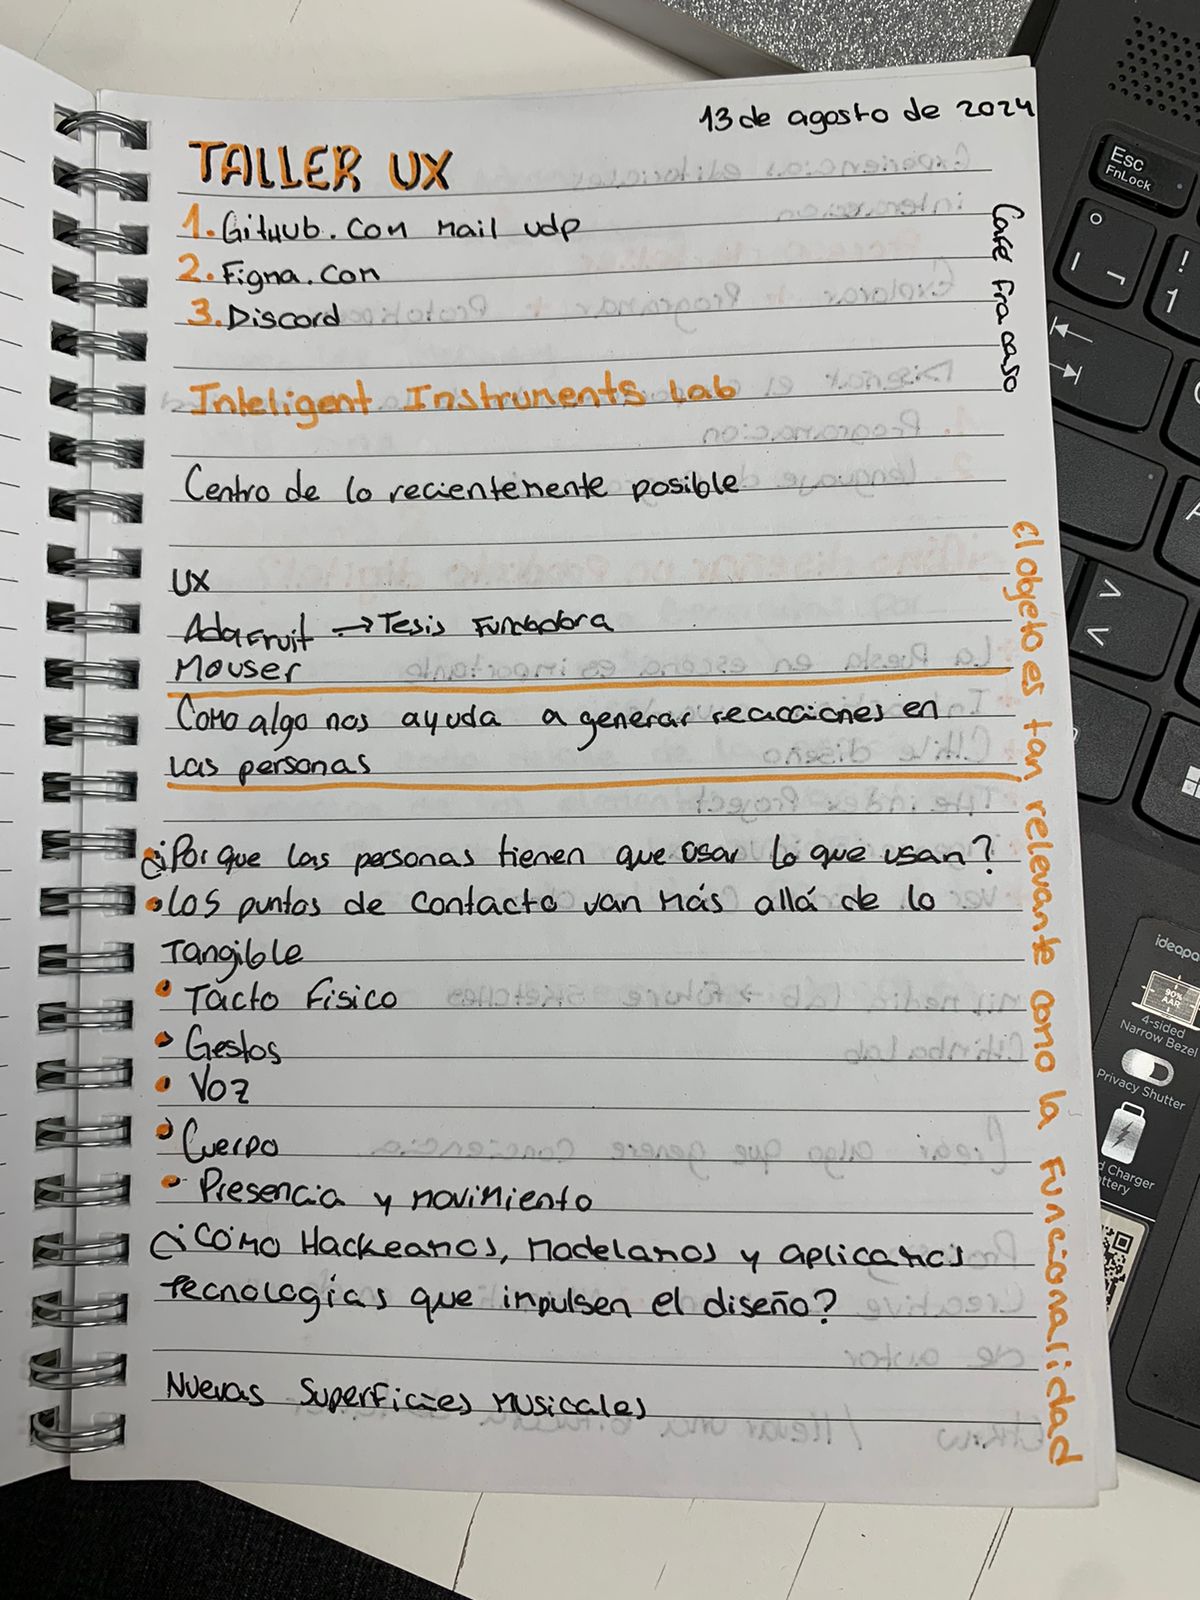 13 de agosto de 2024
TALLER UX
1. GitHub.com mail udp
2. Figma.com
3. Discord
Cafe Fracaso
Inteligent Instruments Lab
Centro de lo recientemente posible
UX
Adafruit → Tesis Fundadora
Mouser
Como algo nos ayuda a generar reacciones en
las personas
¿Por que las personas tienen que usar lo que usan?
• Los puntos de contacto van más allá de lo
Tangible
• Tacto Fisico
• Gestos
• Voz
• Cuerpo
• Presencia y movimiento
¿Cómo Hackeamos, modelamos y aplicamos
tecnologías que impulsen el diseño?
Nuevas Superficies Musicales
El objeto es tan relevante como la Funcionalidad
Esc
FnLock
!
1
>
<
ideapa
90%
AAR
4-sided
Narrow Bezel
Privacy Shutter
d Charger
ttery